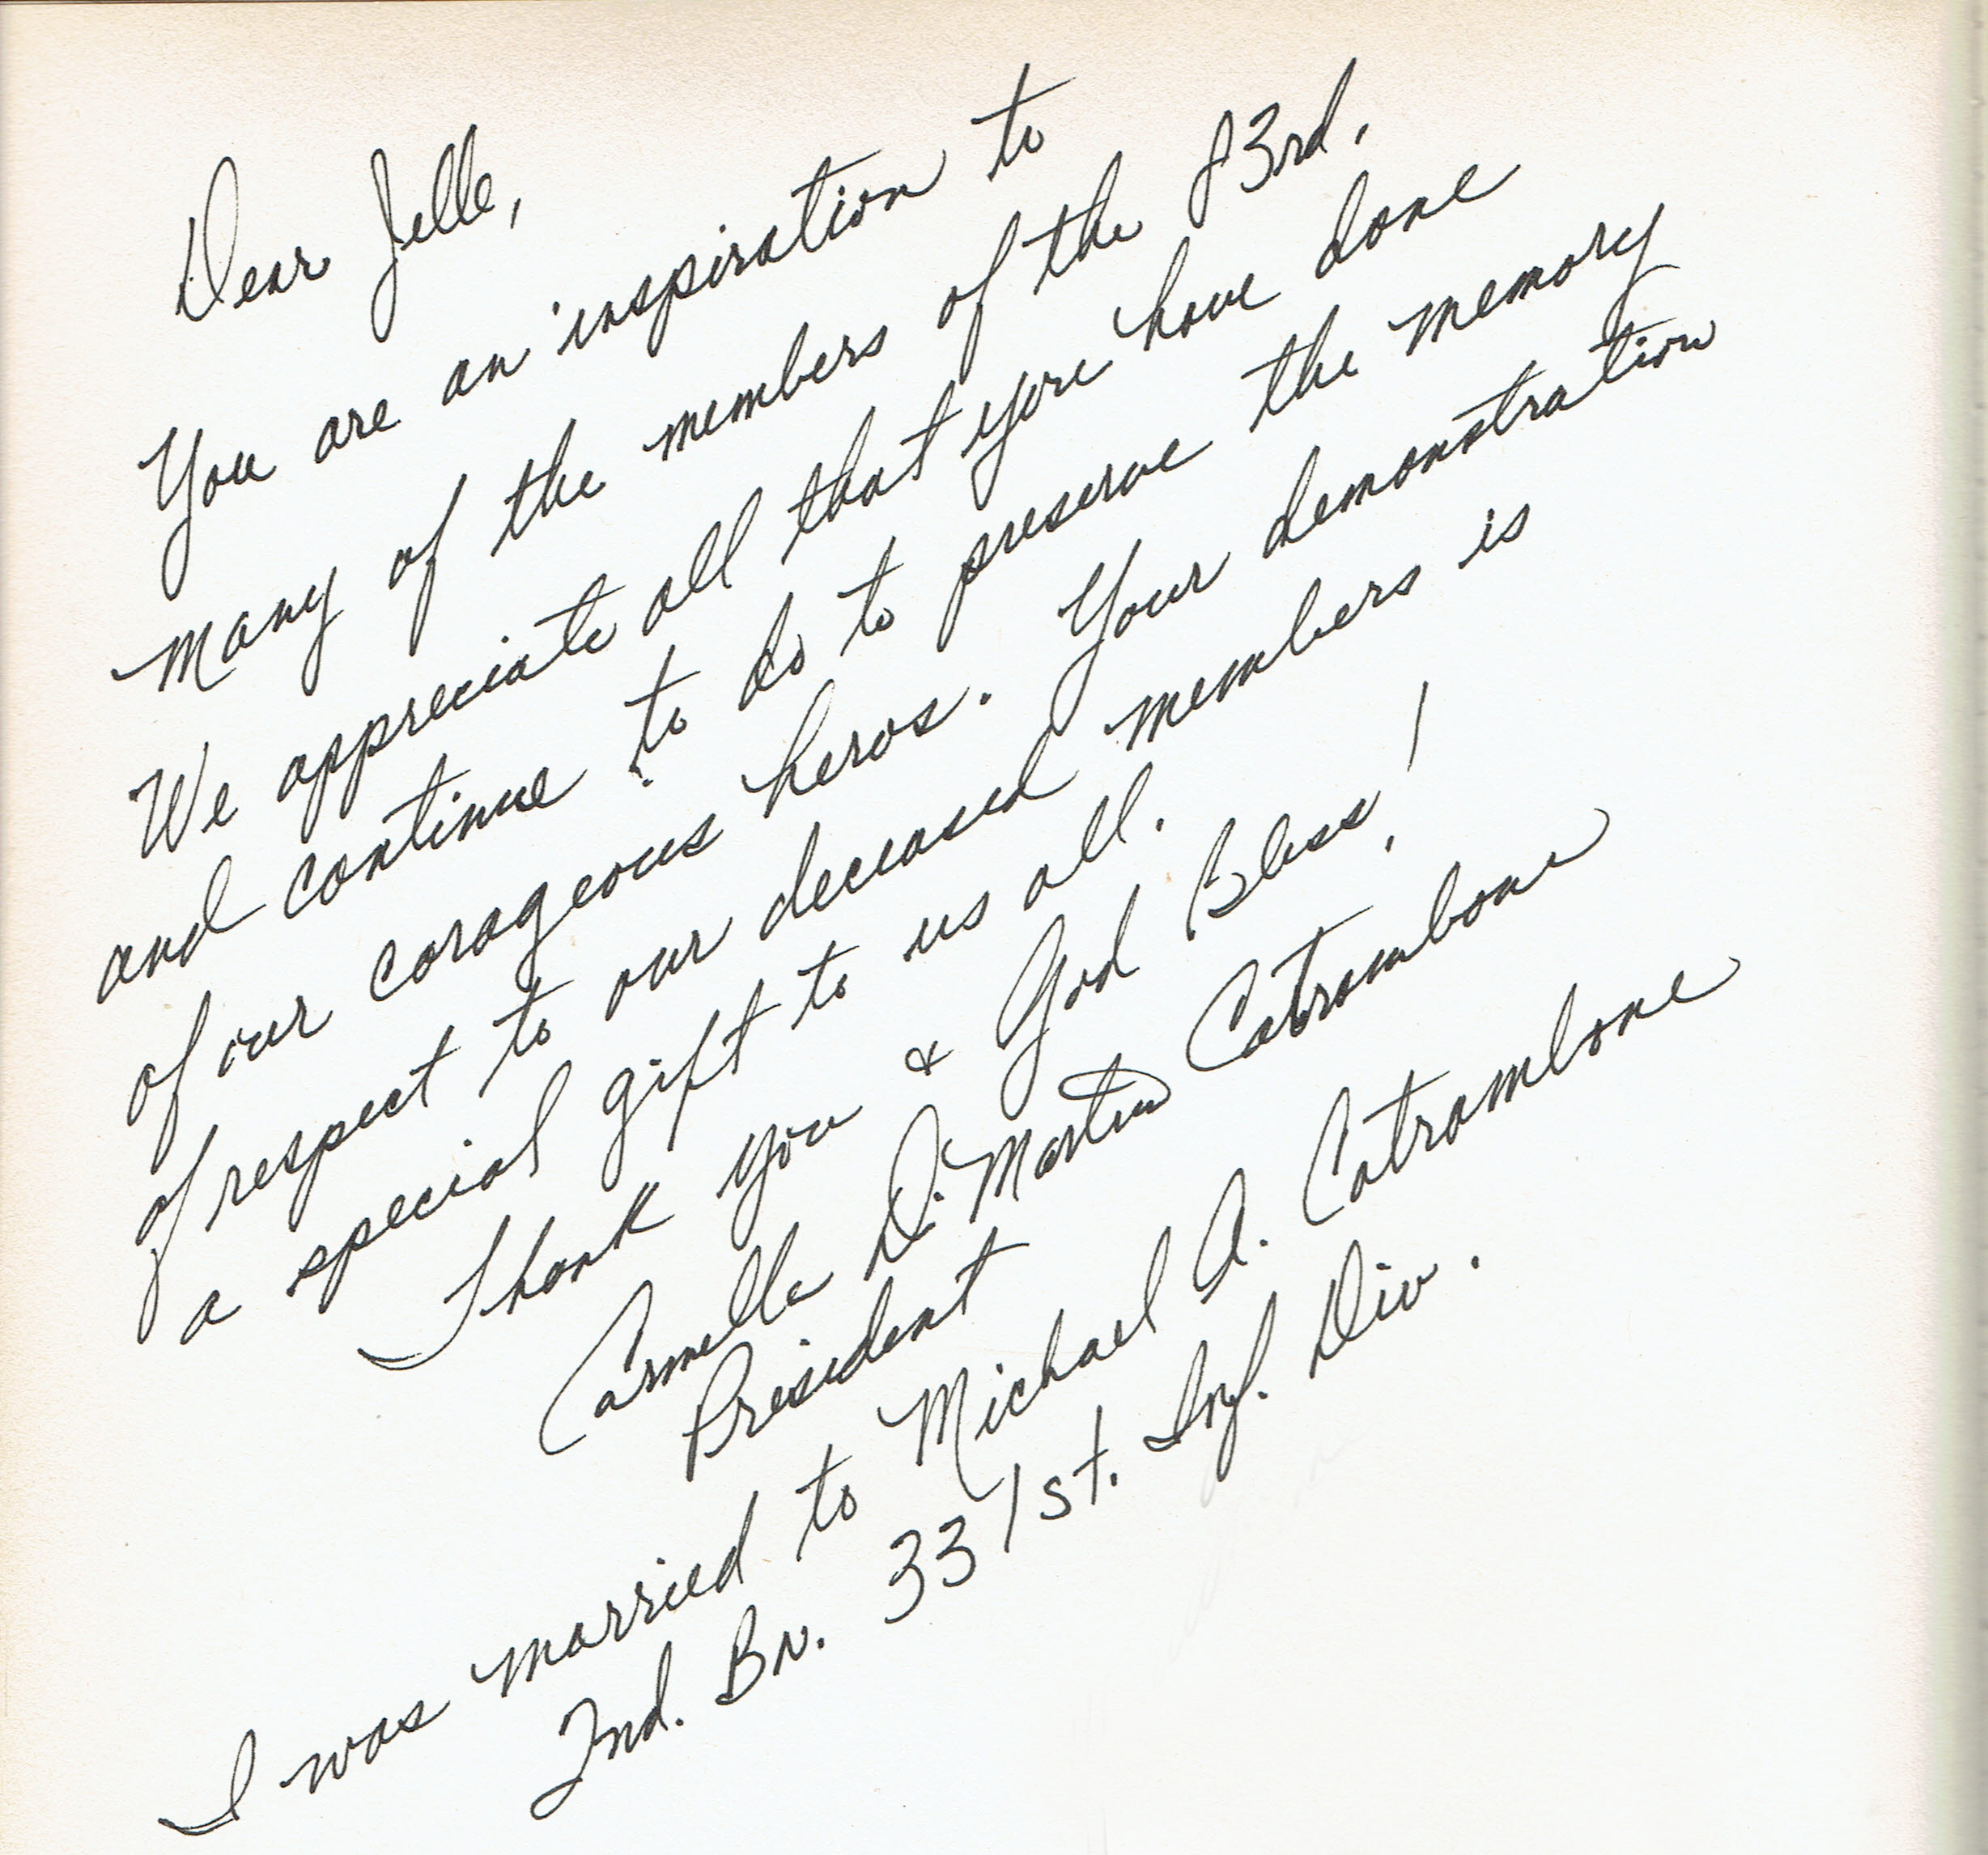 Dear Jelle,
You are an inspiration to
many of the members of the 83rd.
We appreciate all that you have done
and continue to do to preserve the memory
of our corageous heros. Your demonstration
of respect to our deceased members is
a special gift to us all.
Thank you & God Bless!
Carmella DiMartino Catrambone
President
I was married to Michael A. Catrambone
2nd. BN. 331st. Inf. Div.